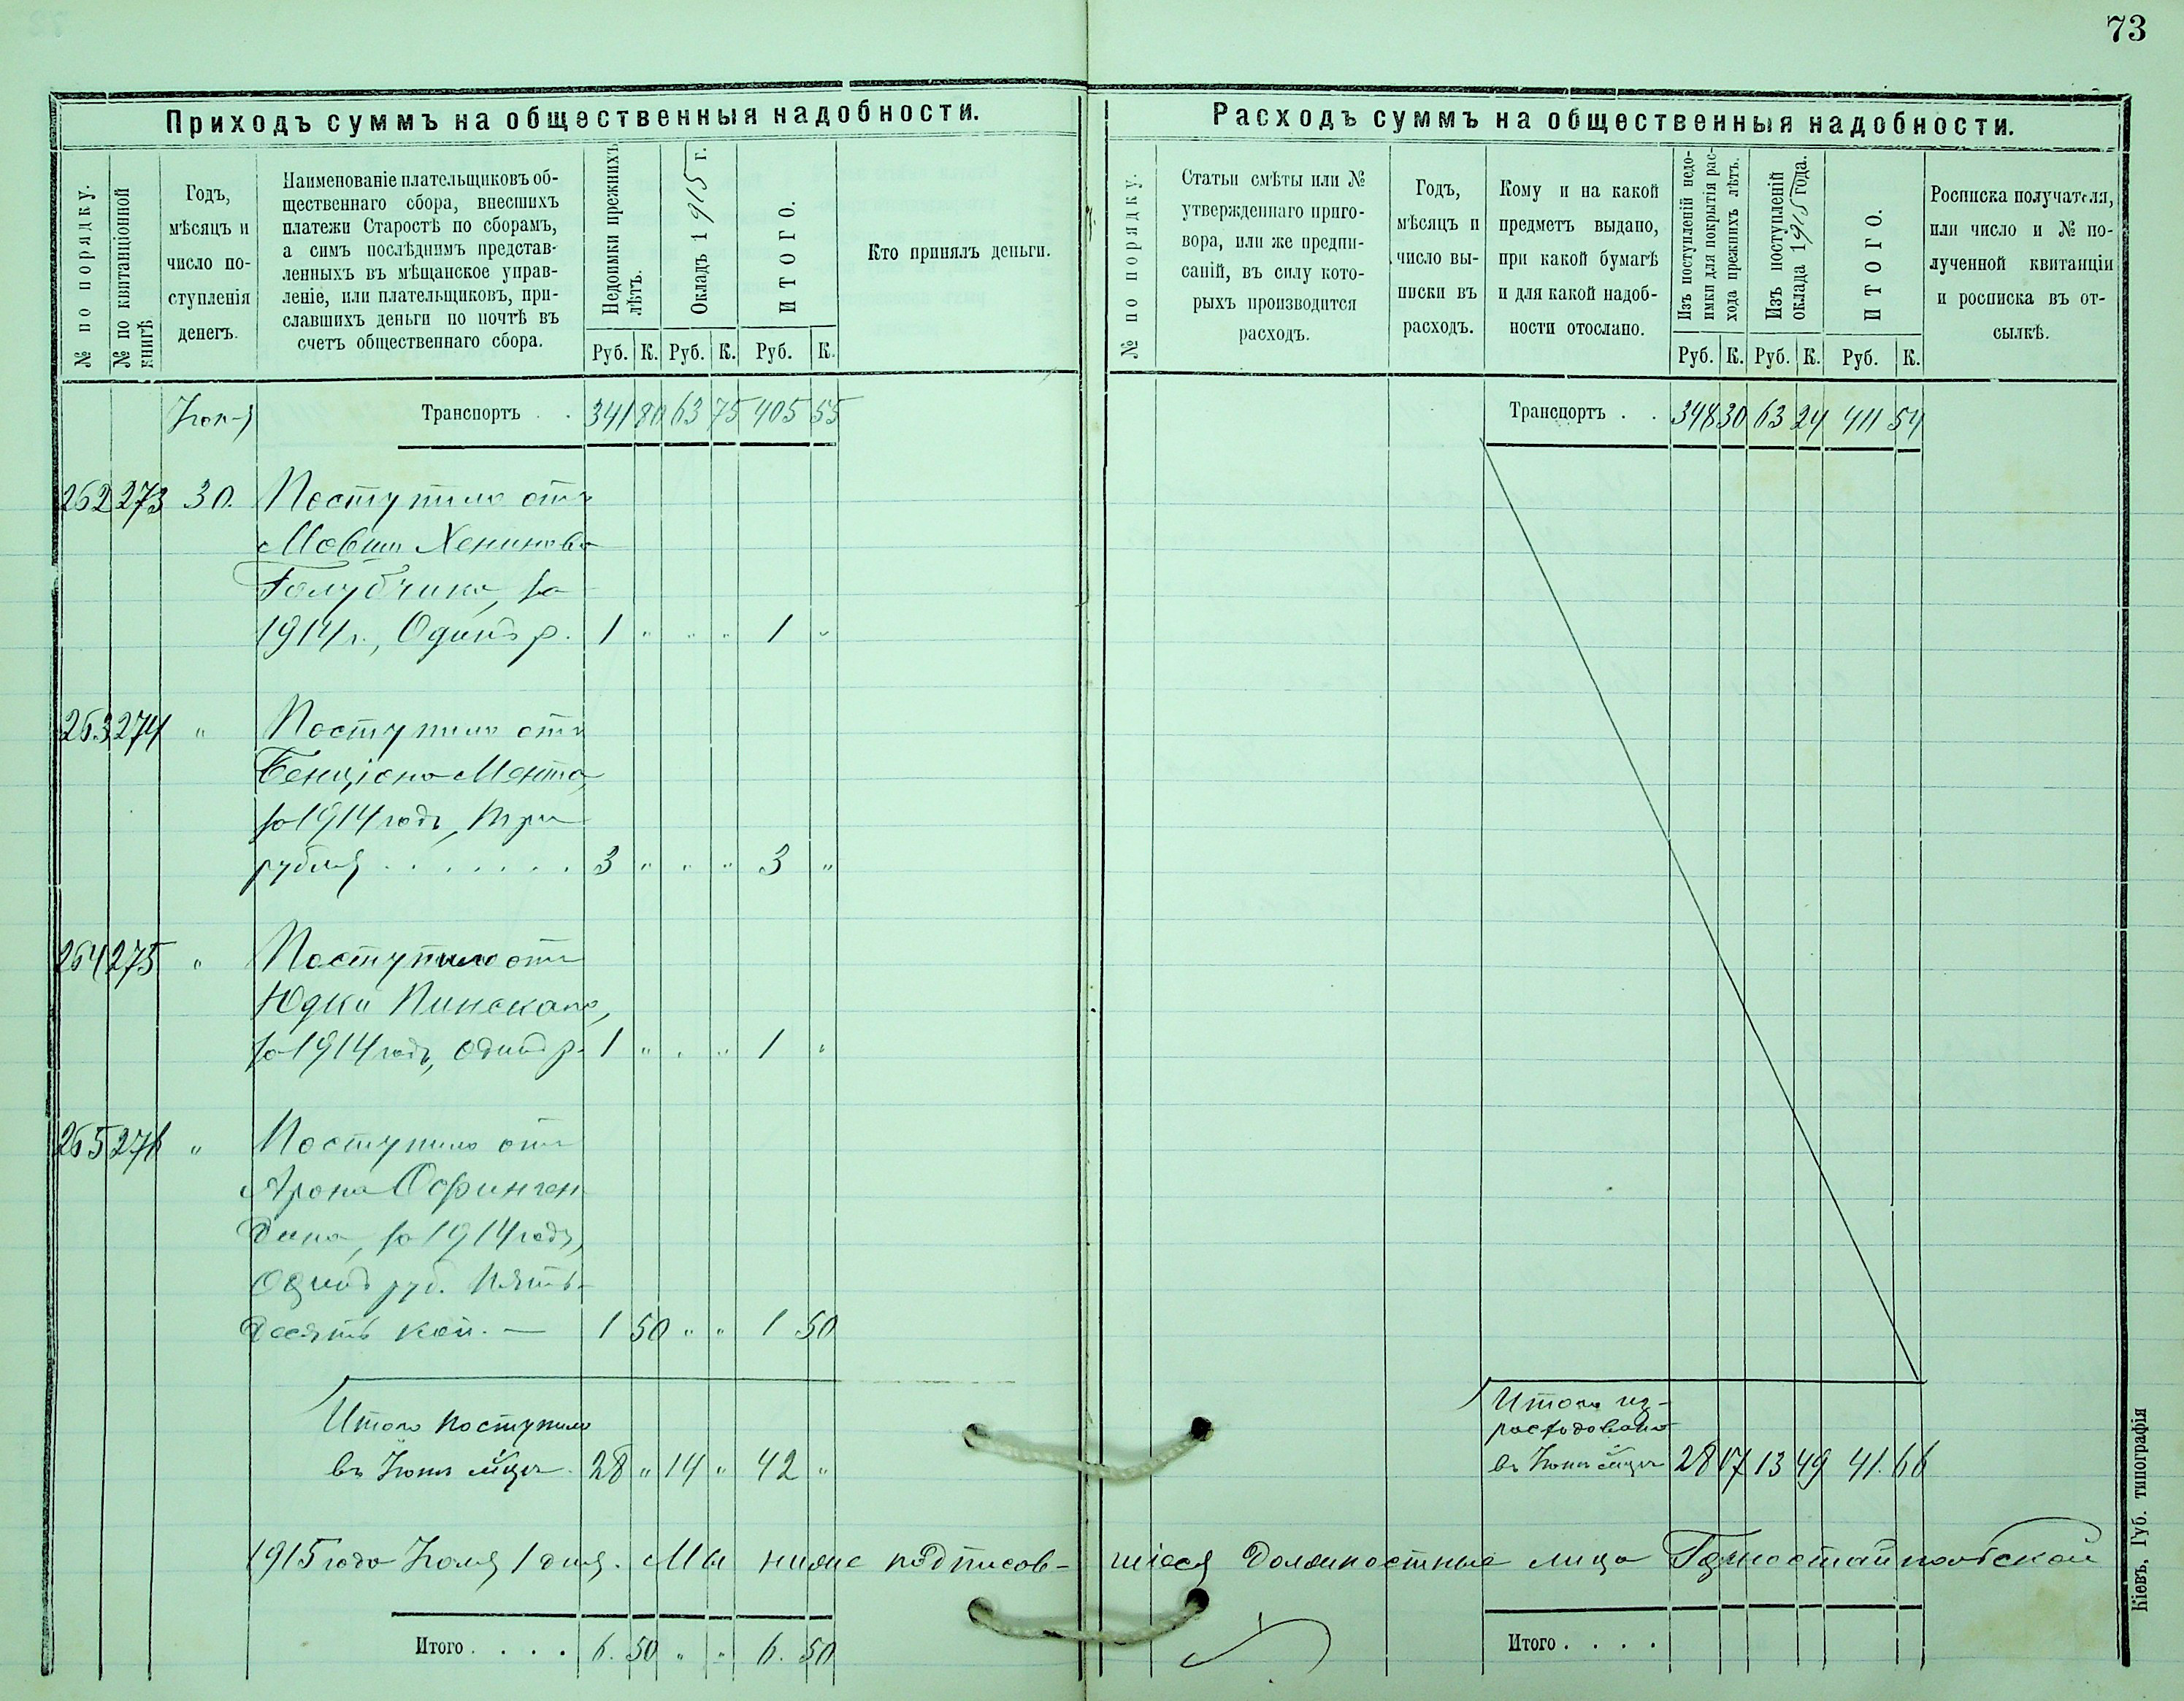 73
Приходъ суммъ на общественныя надобности.
№ по порядку.
№ по квитанціонной книгѣ
Годъ,
мѣсяцъ и
число по-
ступленія
денегъ.
Наименованіе плательщиковъ об-
щественнаго сбора, внесшихъ
платежи Старостѣ по сборамъ,
а симъ послѣднимъ представ-
ленныхъ въ мѣщанское управ-
леніе, или плательщиковъ, при-
славшихъ деньги по почтѣ въ
счетъ общественнаго сбора.
Недоимки прежнихъ
лѣтъ.
Окладъ 1915 г.
ИТОГО.
Руб. К. Руб. К. Руб. К.
Кто принялъ деньги.
Транспортъ . . 341 80 63 75 405 55
262 273 30. Поступило отъ
Мовши Хенинова
Голубчика, за
1914 г., Одинъ р. 1 " " " 1 "
263 274 " Поступило отъ
Бенціона Мента,
за 1914 годъ, три
рубля . . . . . . . 3 " " " 3 "
264 275 " Поступило отъ
Юдки Пинскаго,
за 1914 годъ, одинъ р. 1 " " " 1 "
265 276 " Поступило отъ
Арона
за 1914 годъ,
Одинъ руб. пять-
десятъ коп. — 1 50 " " 1 50
Итого поступило
въ Іюнѣ м̃цѣ 28 " 14 " 42 "
1915 года Іюля 1 дня. Мы ниже подписав-
Итого . . . . 6. 50 " " 6. 50
Расходъ суммъ на общественныя надобности.
№ по порядку.
Статьи смѣты или №
утвержденнаго приго-
вора, или же предпи-
саній, въ силу кото-
рыхъ производится
расходъ.
Годъ,
мѣсяцъ и
число вы-
писки въ
расходъ.
Кому и на какой
предметъ выдано,
при какой бумагѣ
и для какой надоб-
ности отослано.
Изъ поступленій недо-
имки для покрытія рас-
хода прежнихъ лѣтъ.
Изъ поступленій
оклада 1915 года.
ИТОГО.
Руб. К. Руб. К. Руб. К.
Росписка получателя,
или число и № по-
лученной квитанціи
и росписка въ от-
сылкѣ.
Транспортъ . . 348 30 63 24 411 54
Итого из-
расходовано
въ Іюнѣ м̃цѣ 28 17 13 49 41. 66
шіеся должностные лица Горностайпольской
Итого . . . .
Кіевъ, Губ. типографія